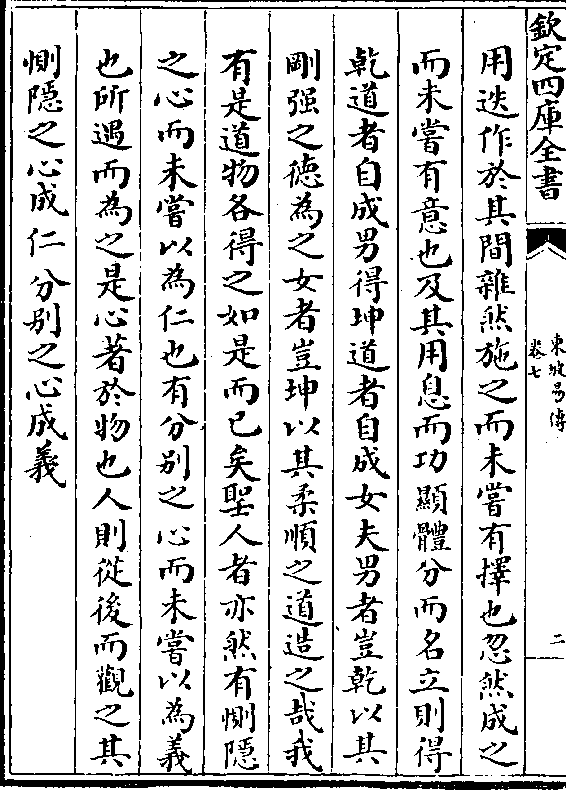 欽定四庫全書
東坡易傳
卷七
二
用迭作於其間雜然施之而未嘗有擇也忽然成之
而未嘗有意也及其用息而功顯體分而名立則得
乾道者自成男得坤道者自成女夫男者豈乾以其
剛强之徳為之女者豈坤以其柔順之道造之哉我
有是道物各得之如是而已矣聖人者亦然有惻隠
之心而未嘗以為仁也有分别之心而未嘗以為義
也所遇而為之是心著於物也人則從後而觀之其
惻隠之心成仁分别之心成義